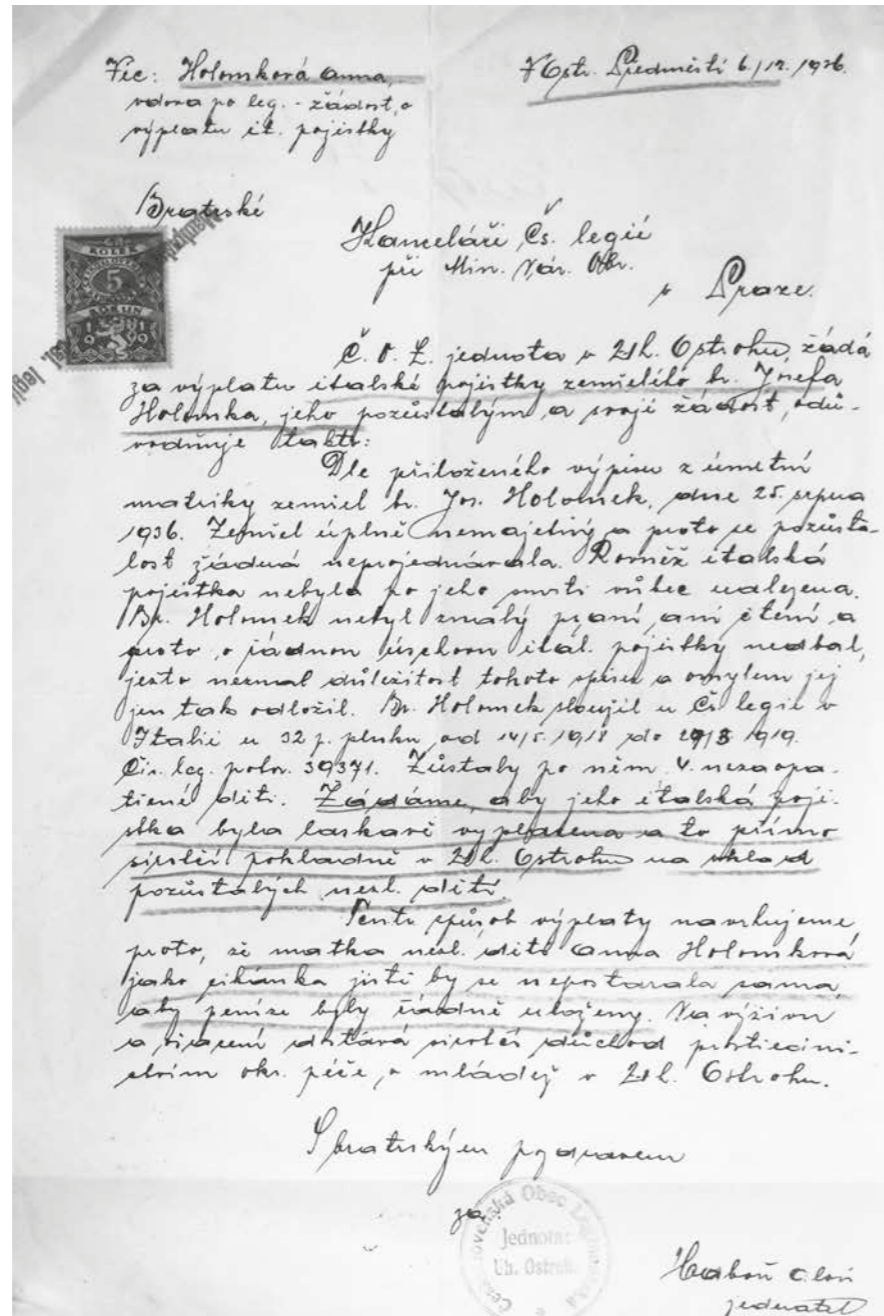 Věc: Holomková Anna,
vdova po leg. - žádost, o
výplatu it. pojistky
V Ostr. Předměstí 6./12. 1936.
Bratrské
KOLEK
5
KORUN
Kanceláři Čs. legií
při Min. Nár. Obr.
v Praze.
Č. O. L. jednota v Uh. Ostrohu, žádá
za výplatu italské pojistky zemřelého br. Josefa
Holomka, jeho pozůstalým a svoji žádost, odů-
vodňuje takto:
Dle přiloženého výpisu z úmrtní
matriky zemřel br. Jos. Holomek, dne 25. srpna
1936. Zemřel úplně nemajetný a proto se pozůsta-
lost žádná neprojednávala. Rovněž italská
pojistka nebyla po jeho smrti vůbec nalezena.
Br. Holomek nebyl znalý psaní, ani čtení, a
proto o řádnou úschovu ital. pojistky nedbal,
ježto neznal důležitost tohoto spisu a omylem jej
jen tak odložil. Br. Holomek sloužil u Čs. legie v
Italii u 32 p. pluku, od 14/5 1918 do 29/8 1919.
Čís. leg. potvr. 39371. Zůstaly po něm 4. nezaopa-
třené děti. Žádáme, aby jeho italská poji-
stka byla laskavě vyplacena a to přímo
sirotčí pokladně v Uh. Ostrohu na vklad
pozůstalých nezl. dětí.
Tento způsob výplaty navrhujeme
proto, že matka nezl. dětí Anna Holomková
jako cikánka jistě by se nepostarala sama,
aby peníze byly řádně uloženy. Na výživu
a ošacení dostává sirotčí důchod prostřednic-
tvím okr. péče, o mládež v Uh. Ostrohu.
S bratrským pozdravem
za
Jednota
Uh. Ostroh
jednatel